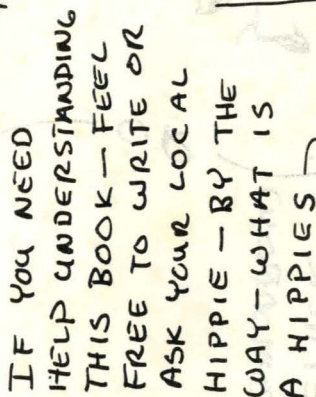 IF YOU NEED
HELP UNDERSTANDING
THIS BOOK — FEEL
FREE TO WRITE OR
ASK YOUR LOCAL
HIPPIE — BY THE
WAY — WHAT IS
A HIPPIES —